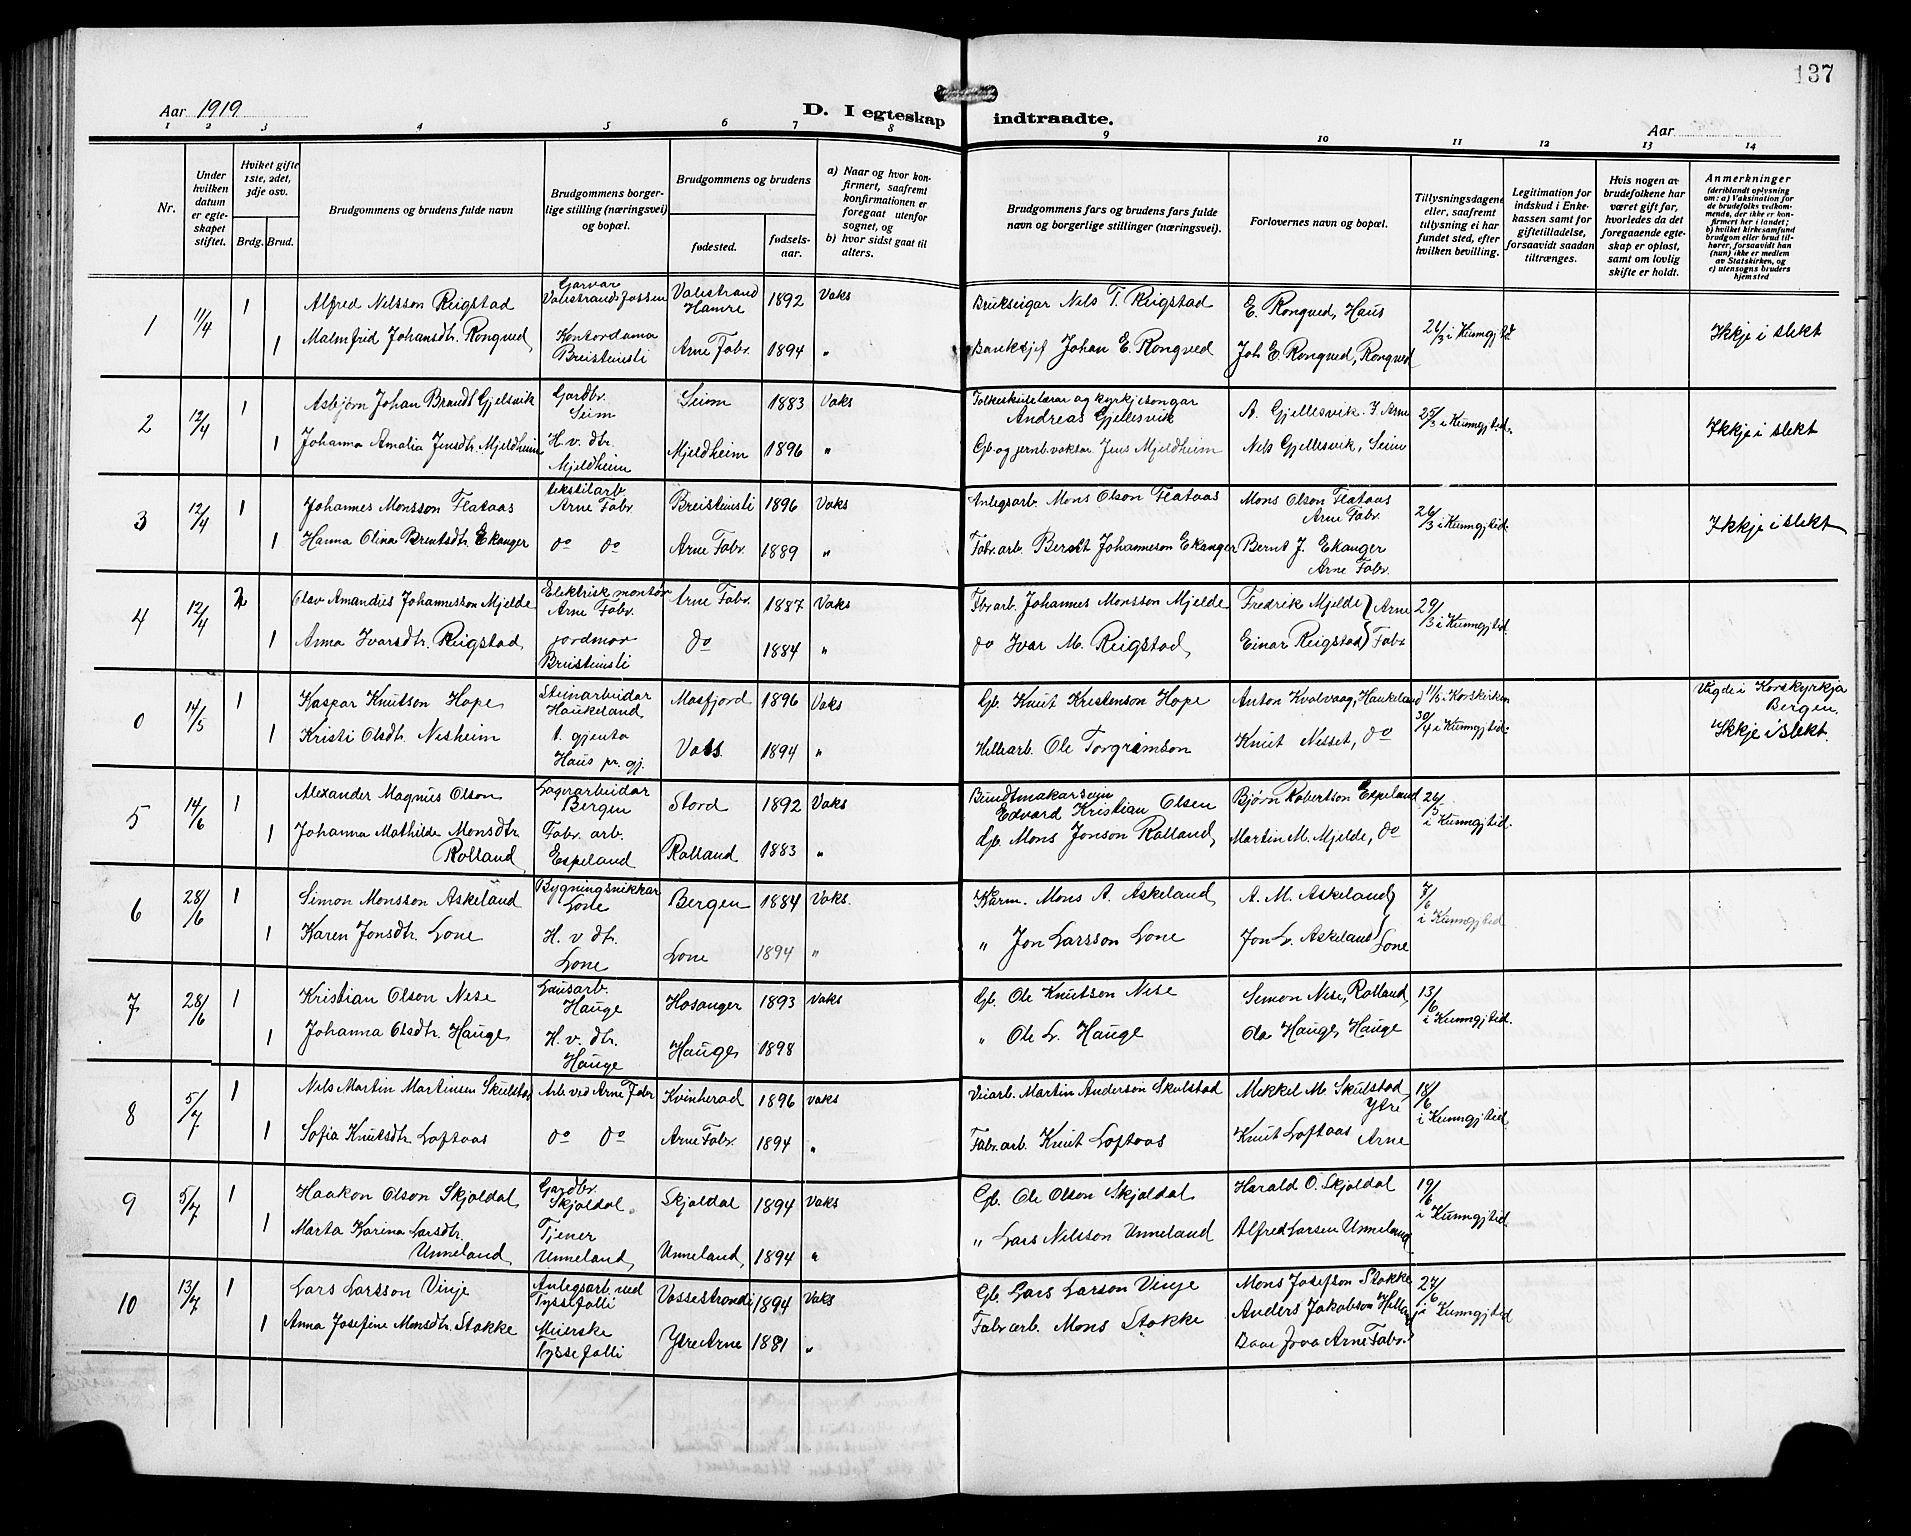 137
Aar 1919
D. I egteskap indtraadte.
Aar
1 2 3 4 5 6 7 8 9 10 11 12 13 14
Nr.
Under hvilken datum er egteskapet stiftet.
Hvilket gifte 1ste, 2det, 3dje osv.
Brdg. Brud.
Brudgommens og brudens fulde navn
Brudgommens borgerlige stilling (næringsvei) og bopæl.
Brudgommens og brudens
fødested.
fødselsaar.
a) Naar og hvor konfirmert, saafremt konfirmationen er foregaat utenfor sognet, og
b) hvor sidst gaat til alters.
Brudgommens fars og brudens fars fulde navn og borgerlige stillinger (næringsvei).
Forlovernes navn og bopæl.
Tillysningsdagene eller, saafremt tillysning ei har fundet sted, efter hvilken bevilling.
Legitimation for indskud i Enkekassen samt for giftetilladelse, forsaavidt saadan tiltrænges.
Hvis nogen av brudefolkene har været gift før, hvorledes da det foregaaende egteskap er opløst, samt om lovlig skifte er holdt.
Anmerkninger
(deriblandt oplysning om: a) Vaksination for de brudefolks vedkommende, der ikke er konfirmert her i landet; b) hvilket kirkesamfund brudgom eller brud tilhører, forsaavidt han (hun) ikke er medlem av Statskirken, og c) utensogns bruders hjemsted
1 11/4 1 Alfred Nilsson Reigstad Garvar Valestrandsfossen Valestrand Hamre 1892 Vaks Brukseigar Nils T. Reigstad E. Rongved, Haus 21/3 i Kunngjtid. Ikkje i slekt
1 Malmfrid Johansdtr. Rongved Kontordama Breisteinsli Arne Fabr. 1894 " Banksjef Johan E. Rongved Joh E. Rongved, Rongved
2 12/4 1 Asbjørn Johan Brandt Gjellesvik Gardbr. Seim Seim 1883 Vaks Folkeskulelærar og kyrkjesongar Andreas Gjellesvik A. Gjellesvik. Y Arne 25/3 i Kunngjtid. Ikkje i slekt
1 Johanna Amalia Jensdtr. Mjeldheim H. v. dtr. Mjeldheim Mjeldheim 1896 " Gb. og jernb.vaktar Jens Mjeldheim Nils Gjellesvik, Seim
3 12/4 1 Johannes Monsson Flataas tekstilarb. Arne Fabr. Breisteinsli 1896 Vaks Anlegsarb. Mons Olson Flataas Mons Olson Flataas Arne Fabr. 26/3 i Kunngjtid. Ikkje i slekt
1 Hanna Olina Berntsdtr. Ekanger do do Arne Fabr. 1889 " Fabr.arb. Berndt Johanneson Ekanger Bernt J. Ekanger Arne Fabr.
4 12/4 2 Olav Amandus Johannesson Mjelde Elektrisk montør Arne Fabr. Arne Fabr. 1887 Vaks Fbr.arb. Johannes Monsson Mjelde Fredrik Mjelde } Arne 29/3 i Kunngjtid.
1 Anna Ivarsdtr. Reigstad jordmor Breisteinsli do 1884 " do Ivar M. Reigstad Einar Reigstad } Fabr
0 14/5 1 Kaspar Knutson Hope Steinarbeidar Haukeland Masfjord 1896 Vaks Gb. Knut Kristenson Hope Anton Kvalvaag, Haukeland 11/5 i Korskirken 30/4 i Kunngjtid. Vigde i Korskyrkja Bergen.
1 Kristi Olsdtr. Nesheim t. gjenta Haus pr. gj. Voss 1894 " Hellearb. Ole Torgrimson Knut Nesset, do Ikkje i slekt.
5 14/6 1 Alexander Magnus Olson Lagerarbeidar Bergen Stord 1892 Vaks Bundtmakarsvein Edvard Kristian Olsen Bjørn Robertson Espeland i Kunngjtid.
1 Johanna Mathilde Monsdtr. Rolland Fabr. arb. Espeland Rolland 1883 " Gb. Mons Jonson Rolland Martin M. Mjelde, do
6 28/6 1 Simon Monsson Askeland Bygningsnikkar Lone Bergen 1884 Vaks. Kårm. Mons A. Askeland A. M. Askeland } 7/6 i Kunngjtid
1 Karen Jonsdtr. Lone H. v dtr. Lone Lone 1894 " " Jon Larsson Lone Jon L. Askeland } Lone
7 28/6 1 Kristian Olson Nese Lausarb. Hauge Hosanger 1893 Vaks Gb. Ole Knutson Nese Simon Nese, Rolland 13/6 i Kunngjtid.
1 Johanna Olsdtr. Hauge H. v. dtr. Hauge Hauge 1898 " Ole L. Hauge Ole Hauge, Hauge
8 5/7 1 Nils Martin Martinsen Skulstad Arb. ved Arne Fabr Kvinherad 1896 vaks Veiarb. Martin Anderson Skulstad Mekkel M. Skulstad Ytre 18/6 i Kunngjtid
1 Sofia Knutsdtr. Loftaas do do Arne Fabr. 1894 " Fabr.arb. Knut Loftaas Knut Loftaas Arne
9 5/7 1 Haakon Olson Skjoldal Gardbr. Skjoldal Skjoldal 1894 Vaks Gb. Ole Olson Skjoldal Harald O. Skjoldal 19/6 i Kunngjtid
1 Marta Karina Larsdtr. Unneland Tjener Unneland Unneland 1894 " " Lars Nilsson Unneland Alfred Larsen Unneland
10 13/7 1 Lars Larsson Vinje Anlegsarb. ved Tyssefolli Vossestrond 1894 Vaks Gb. Lars Larson Vinje Mons Josefson Stokke 27/6 i Kunngjtid
1 Anna Josefine Monsdtr. Stokke Meierske Tyssefolli Ytre Arne 1881 " Fabr arb. Mons Stokke Anders Jakobson Helland Arne Fabr.